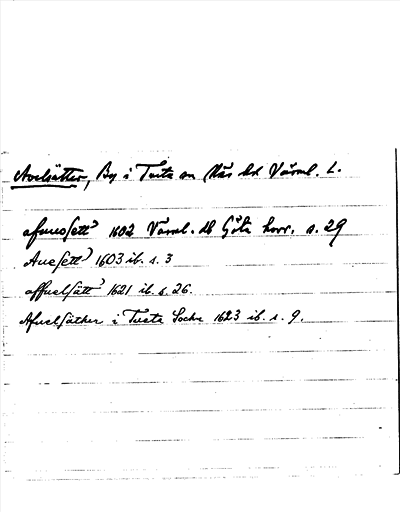 Avelsätter, By i Tveta sn Näs hd Värml. L.
afuuosett 1602 Värml. 28 Göta kavr. s. 29
Auesett 1603 ib. s. 3
affuelsätt 1621 ib. s. 26.
Afuelsäther i Tueta Sockn 1623 ib. s. 9.